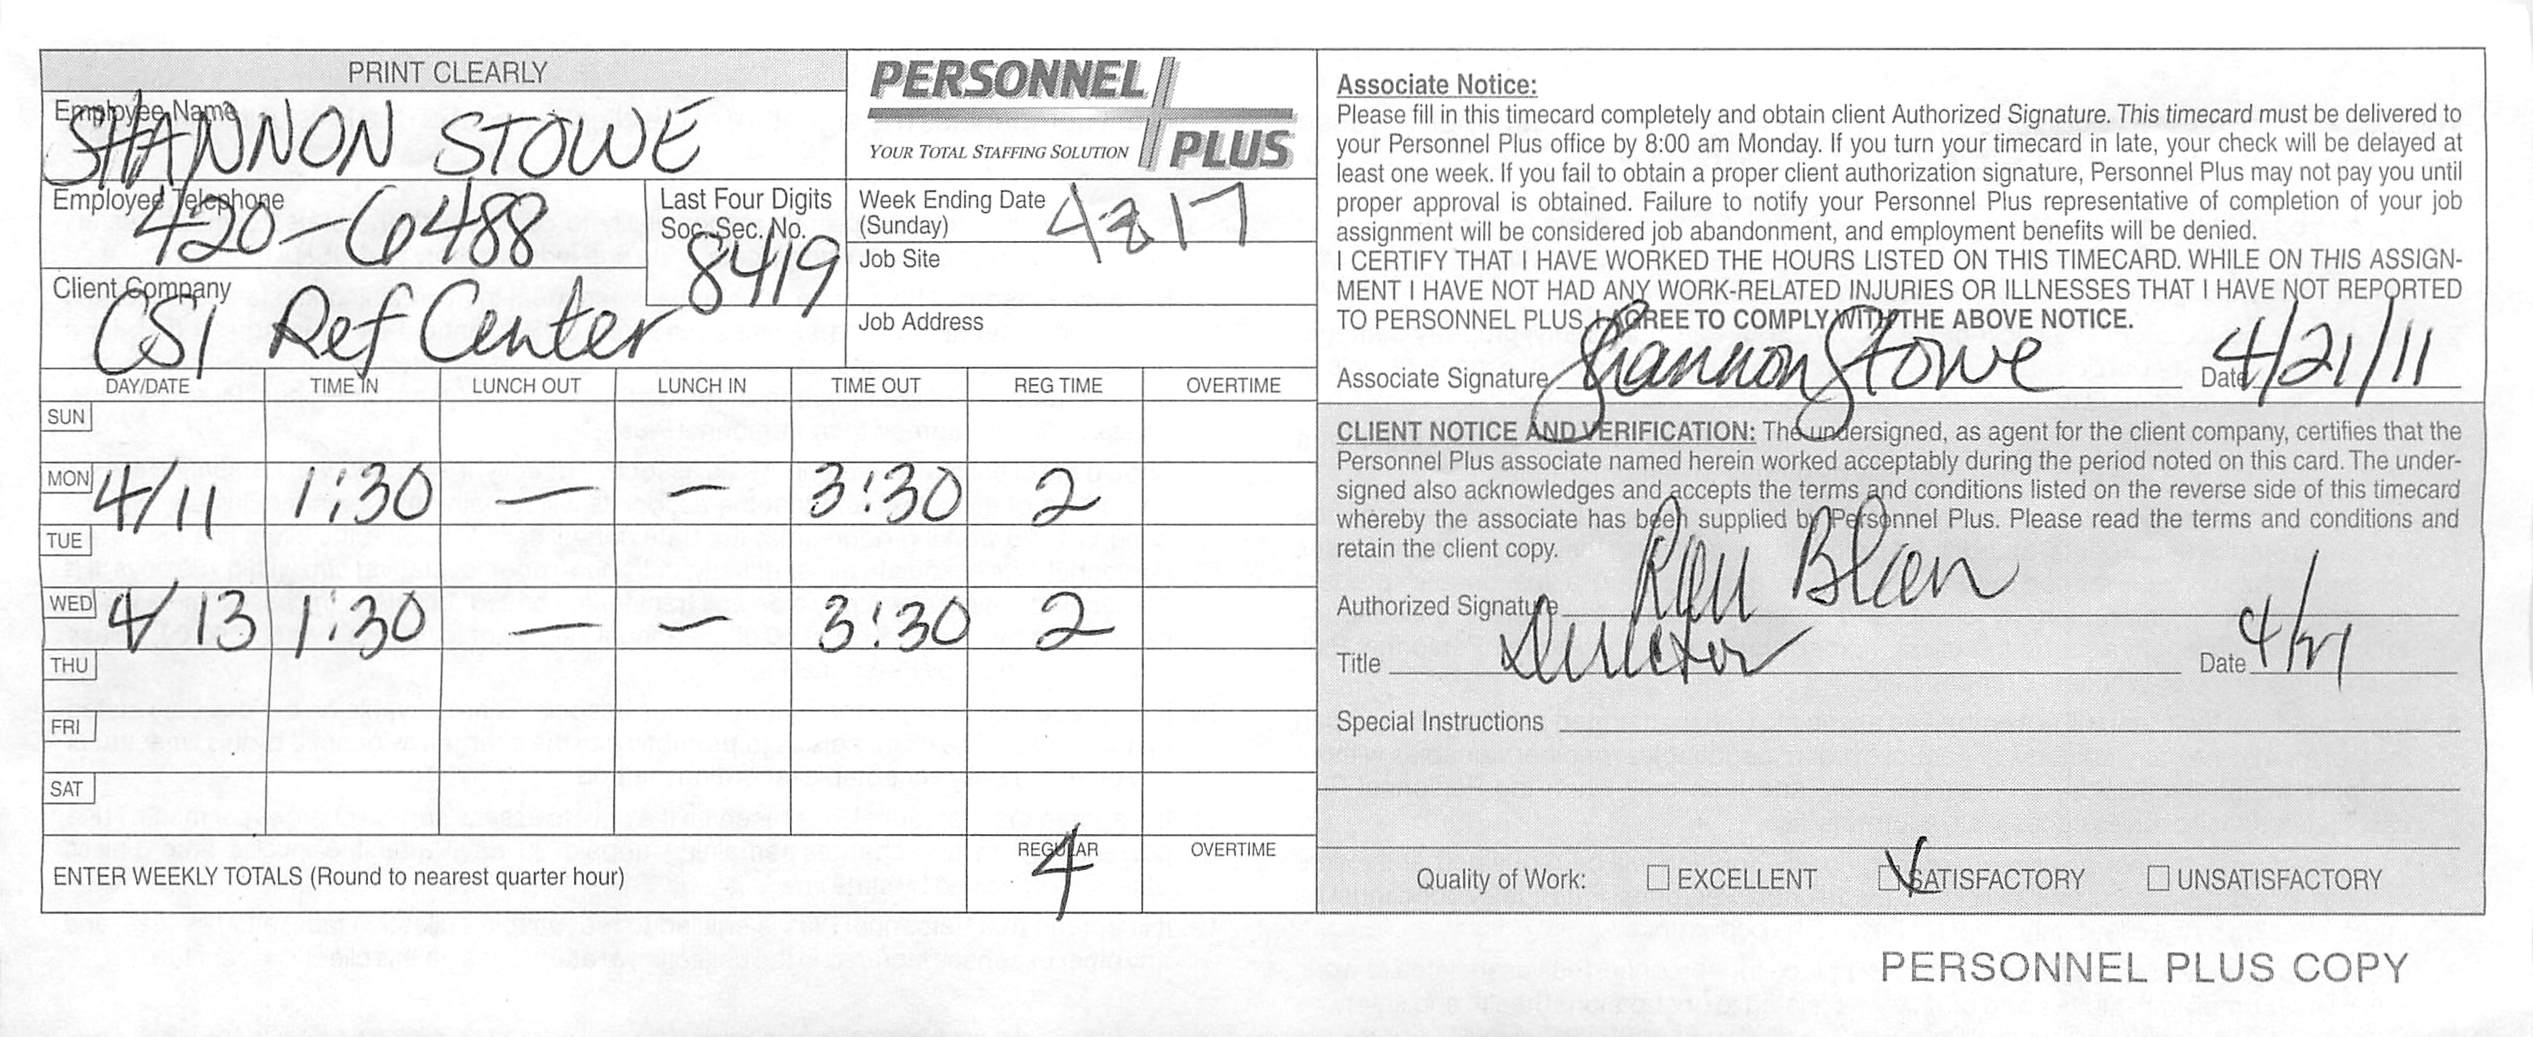 PRINT CLEARLY
Employee Name
SHANNON STOWE
Employee Telephone
420-6488
Last Four Digits
Soc. Sec. No.
8419
Client Company
CSI Ref Center
PERSONNEL
PLUS
YOUR TOTAL STAFFING SOLUTION
Week Ending Date
(Sunday)
Job Site
Job Address
DAY/DATE TIME IN LUNCH OUT LUNCH IN TIME OUT REG TIME OVERTIME
SUN
MON 4/11 1:30 — — 3:30 2
TUE
WED 4/13 1:30 — — 3:30 2
THU
FRI
SAT
REGULAR OVERTIME
ENTER WEEKLY TOTALS (Round to nearest quarter hour) 4
Associate Notice:
Please fill in this timecard completely and obtain client Authorized Signature. This timecard must be delivered to
your Personnel Plus office by 8:00 am Monday. If you turn your timecard in late, your check will be delayed at
least one week. If you fail to obtain a proper client authorization signature, Personnel Plus may not pay you until
proper approval is obtained. Failure to notify your Personnel Plus representative of completion of your job
assignment will be considered job abandonment, and employment benefits will be denied.
I CERTIFY THAT I HAVE WORKED THE HOURS LISTED ON THIS TIMECARD. WHILE ON THIS ASSIGN-
MENT I HAVE NOT HAD ANY WORK-RELATED INJURIES OR ILLNESSES THAT I HAVE NOT REPORTED
TO PERSONNEL PLUS. I AGREE TO COMPLY WITH THE ABOVE NOTICE.
Associate Signature Shannon Stowe Date 4/21/11
CLIENT NOTICE AND VERIFICATION: The undersigned, as agent for the client company, certifies that the
Personnel Plus associate named herein worked acceptably during the period noted on this card. The under-
signed also acknowledges and accepts the terms and conditions listed on the reverse side of this timecard
whereby the associate has been supplied by Personnel Plus. Please read the terms and conditions and
retain the client copy.
Authorized Signature
Title Director Date 4/21
Special Instructions
Quality of Work: EXCELLENT SATISFACTORY UNSATISFACTORY
PERSONNEL PLUS COPY